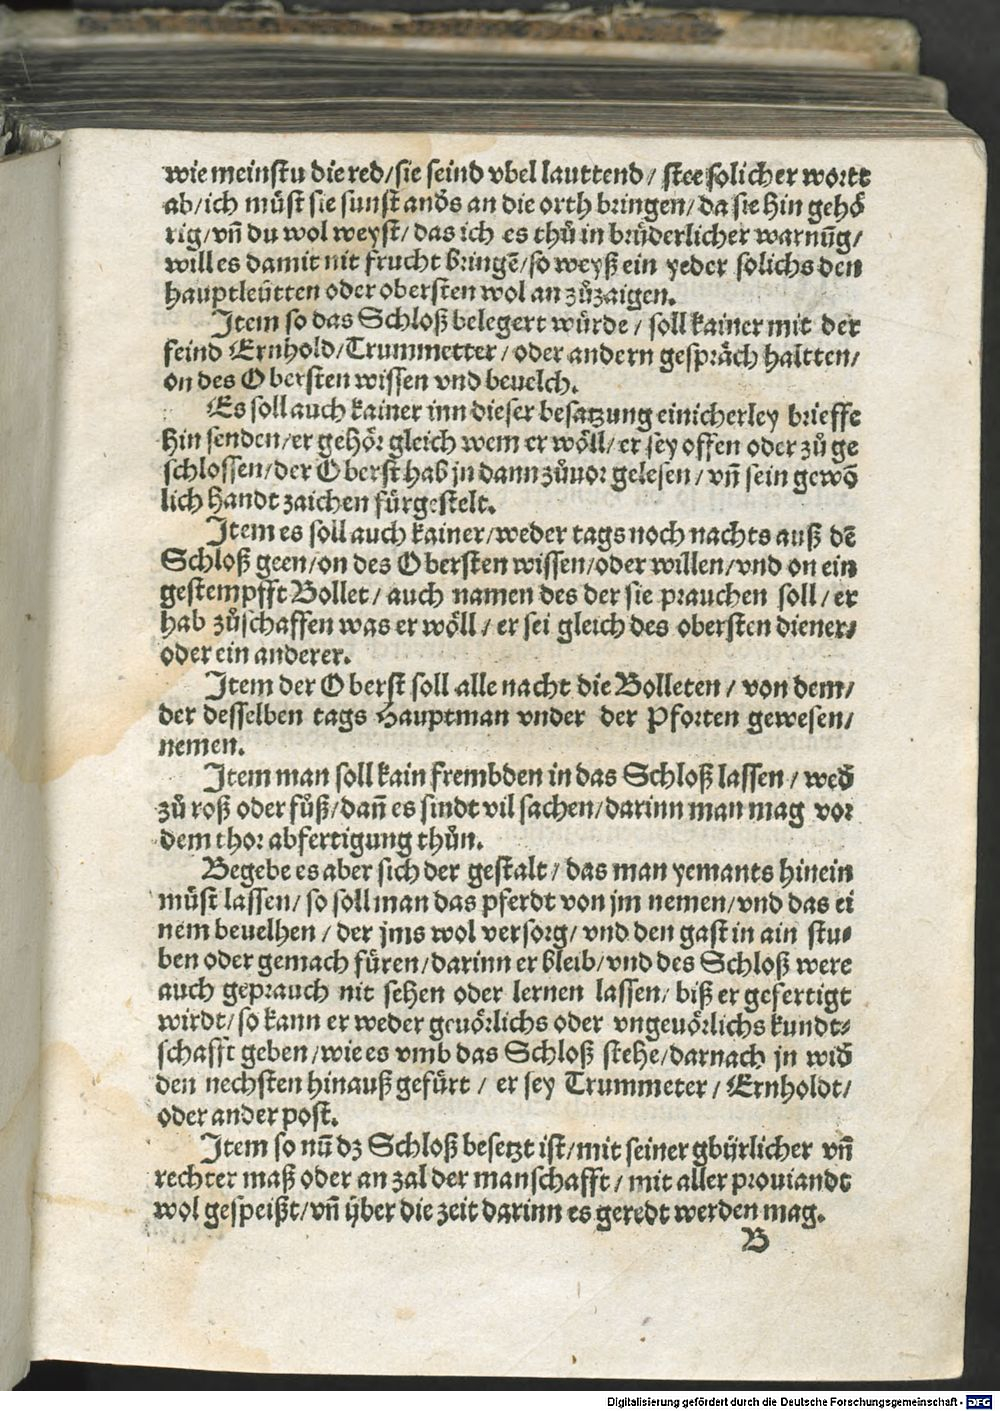 wie meinstu die red/sie seind vbel lauttend/ stee solicher wortt
ab/ich můst sie sunst anďs an die orth bringen/da sie hin gehö
rig/vñ du wol weyst/das ich es thů in brüderlicher warnũg/
will es damit nit frucht bringẽ/so weyß ein yeder solichs den
hauptleütten oder obersten wol an zůzaigen.
Item so das Schloß belegert würde/ soll kainer mit der
feind Ernhold/Trummetter/oder andern gespräch haltten/
on des Obersten wissen vnd beuelch.
Es soll auch kainer inn dieser besatzung einicherley brieffe
hin senden/er gehör gleich wem er wöll/er sey offen oder zů ge
schlossen/der Oberst hab jn dann zůuor gelesen/vñ sein gewõ
lich handt zaichen fürgestelt.
Item es soll auch kainer/weder tags noch nachts auß dẽ
Schloß geen/on des Obersten wissen/oder willen/vnd on ein
gestempfft Bollet/ auch namen des der sie prauchen soll/er
hab zůschaffen was er wöll/er sei gleich des obersten diener/
oder ein anderer.
Item der Oberst soll alle nacht die Bolleten/ von dem/
der desselben tags Hauptman vnder der Pforten gewesen/
nemen.
Item man soll kain frembden in das Schloß lassen/ weď
zů roß oder fůß/dañ es sindt vil sachen/darinn man mag vor
dem thor abfertigung thůn.
Begebe es aber sich der gestalt/ das man yemants hinein
můst lassen/so soll man das pferdt von jm nemen/vnd das ei
nem beuelhen/der jms wol versorg/vnd den gast in ain stu⸗
ben oder gemach füren/darinn er bleib/vnd des Schloß were
auch geprauch nit sehen oder lernen lassen/biß er gefertigt
wirdt/so kann er weder geuörlichs oder vngeuörlichs kundt⸗
schafft geben/wie es vmb das Schloß stehe/darnach jn wiď
den nechsten hinauß gefürt/ er sey Trummeter/Ernholdt/
oder ander post.
Item so nũ dz Schloß besetzt ist/mit seiner gbürlicher vñ
rechter maß oder an zal der manschafft/mit aller prouiandt
wol gespeißt/vñ über die zeit darinn es geredt werden mag.
B
Digitalisierung gefördert durch die Deutsche Forschungsgemeinschaft - DFG